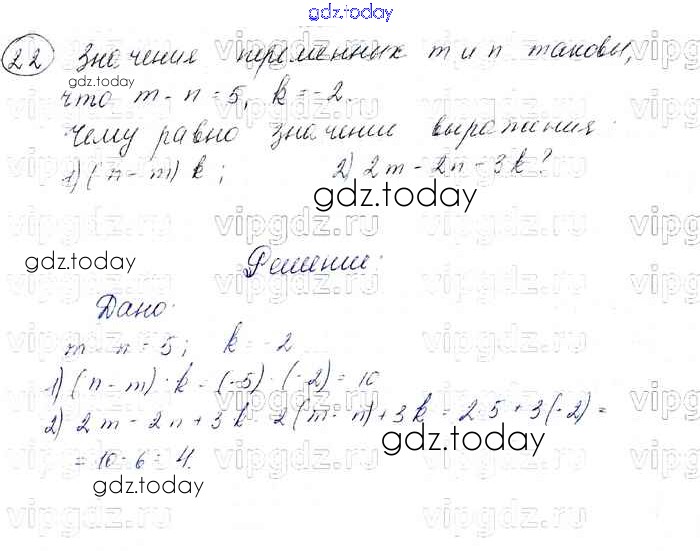 gdz.today
22 Значения переменных m и n таковы,
что m - n = 5, k = -2.
Чему равно значение выражения:
1) (n - m) k ; 2) 2m - 2n + 3k ?
gdz.today
gdz.today
Решение:
Дано:
m - n = 5; k = -2
1) (n - m) · k = (-5) · (-2) = 10
2) 2m - 2n + 3k = 2(m - n) + 3k = 2·5 + 3(-2) =
gdz.today
= 10 - 6 = 4.
gdz.today